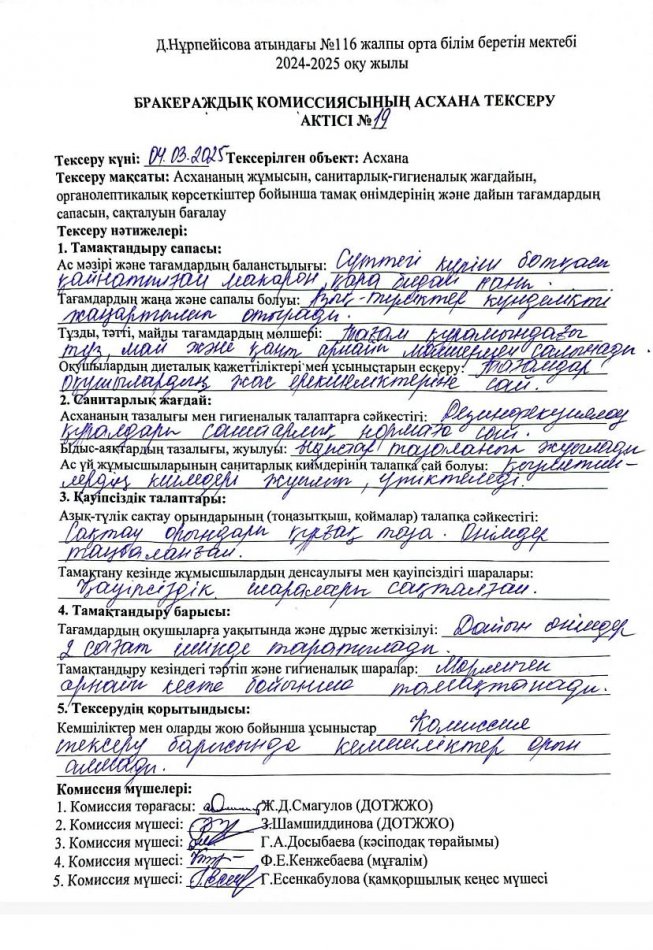 Д.Нұрпейісова атындағы №116 жалпы орта білім беретін мектебі
2024-2025 оқу жылы
БРАКЕРАЖДЫҚ КОМИССИЯСЫНЫҢ АСХАНА ТЕКСЕРУ
АКТІСІ №19
Тексеру күні: 04.03.2025 Тексерілген объект: Асхана
Тексеру мақсаты: Асхананың жұмысын, санитарлық-гигиеналық жағдайын,
органолептикалық көрсеткіштер бойынша тамақ өнімдерінің және дайын тағамдардың
сапасын, сақталуын бағалау
Тексеру нәтижелері:
1. Тамақтандыру сапасы:
Ас мәзірі және тағамдардың баланстылығы: Сүттегі күріш ботқасы
қайнатылған макарон, қара бидай наны.
Тағамдардың жаңа және сапалы болуы: Азық-түліктер күнделікті
жаңартылып отырады.
Тұзды, тәтті, майлы тағамдардың мөлшері: Тағам құрамындағы
тұз, май және қант арнайы мөлшермен салынады.
Оқушылардың дисталық қажеттіліктері мен ұсыныстарын ескеру: Тағамдар
оқушылардың жас ерекшеліктеріне сай.
2. Санитарлық жағдай:
Асхананың тазалығы мен гигиеналық талаптарға сәйкестігі: Дезинфекциялау
құралдары санитарлық нормаға сай.
Ыдыс-аяқтардың тазалығы, жуылуы: ыдыстар тазаланып жуылады
Ас үй жұмысшыларының санитарлық киімдерінің талапқа сай болуы: қызметкер-
лердің киімдері жуылып, үтіктеледі.
3. Қауіпсіздік талаптары:
Азық-түлік сақтау орындарының (тоңазытқыш, қоймалар) талапқа сәйкестігі:
Сақтау орындары құрғақ таза. Өнімдер
таңбаланған.
Тамақтану кезінде жұмысшылардың денсаулығы мен қауіпсіздігі шаралары:
Қауіпсіздік шаралары сақталған.
4. Тамақтандыру барысы:
Тағамдардың оқушыларға уақытында және дұрыс жеткізілуі: Дайын өнімдер
2 сағат ішінде таратылады.
Тамақтандыру кезіндегі тәртіп және гигиеналық шаралар: Мәзірмен
арнайы кесте бойынша тамақтанады.
5. Тексерудің қорытындысы:
Кемшіліктер мен оларды жою бойынша ұсыныстар Комиссия
тексеру барысында кемшіліктер орын
алмады.
Комиссия мүшелері:
1. Комиссия төрағасы: Ж.Д.Смагулов (ДОТЖЖО)
2. Комиссия мүшесі: З.Шамшиддинова (ДОТЖЖО)
3. Комиссия мүшесі: Г.А.Досыбаева (кәсіподақ төрайымы)
4. Комиссия мүшесі: Ф.Е.Кенжебаева (мұғалім)
5. Комиссия мүшесі: Г.Есенкабулова (қамқоршылық кеңес мүшесі